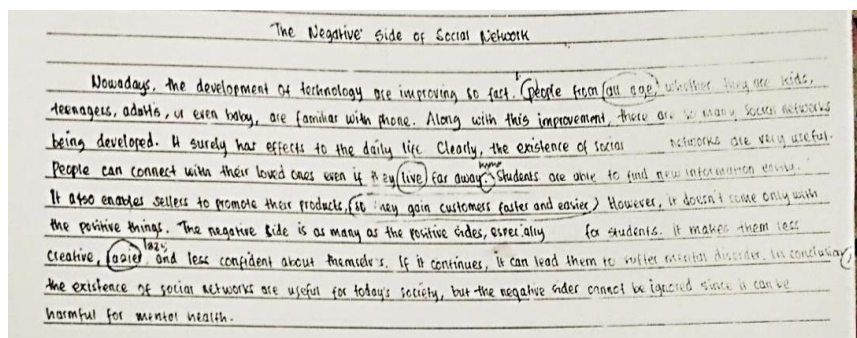 The Negative Side of Social Network
Nowadays, the development of technology are improving so fast. people from all age, whether they are kids,
teenagers, adults, or even baby, are familiar with phone. Along with this improvement, there are so many social networks
being developed. It surely has effects to the daily life. Clearly, the existence of social networks are very useful.
People can connect with their loved ones even if they live far away. Students are able to find new information easily.
It also enables sellers to promote their products, so they gain customers faster and easier. However, it doesn't come only with
the positive things. The negative side is as many as the positive sides, especially for students. it makes them less
lazy
creative, and less confident about themselves. If it continues, it can lead them to suffer mental disorder. In conclusion,
the existence of social networks are useful for today's society, but the negative sides cannot be ignored since it can be
harmful for mental health.